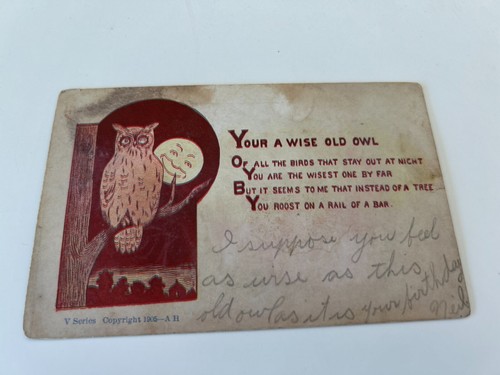 YOUR A WISE OLD OWL
OF ALL THE BIRDS THAT STAY OUT AT NIGHT
YOU ARE THE WISEST ONE BY FAR
BUT IT SEEMS TO ME THAT INSTEAD OF A TREE
YOU ROOST ON A RAIL OF A BAR.
I suppose you feel
as wise as this
old owl as it is your birthday
Neil
V Series Copyright 1905—A 11